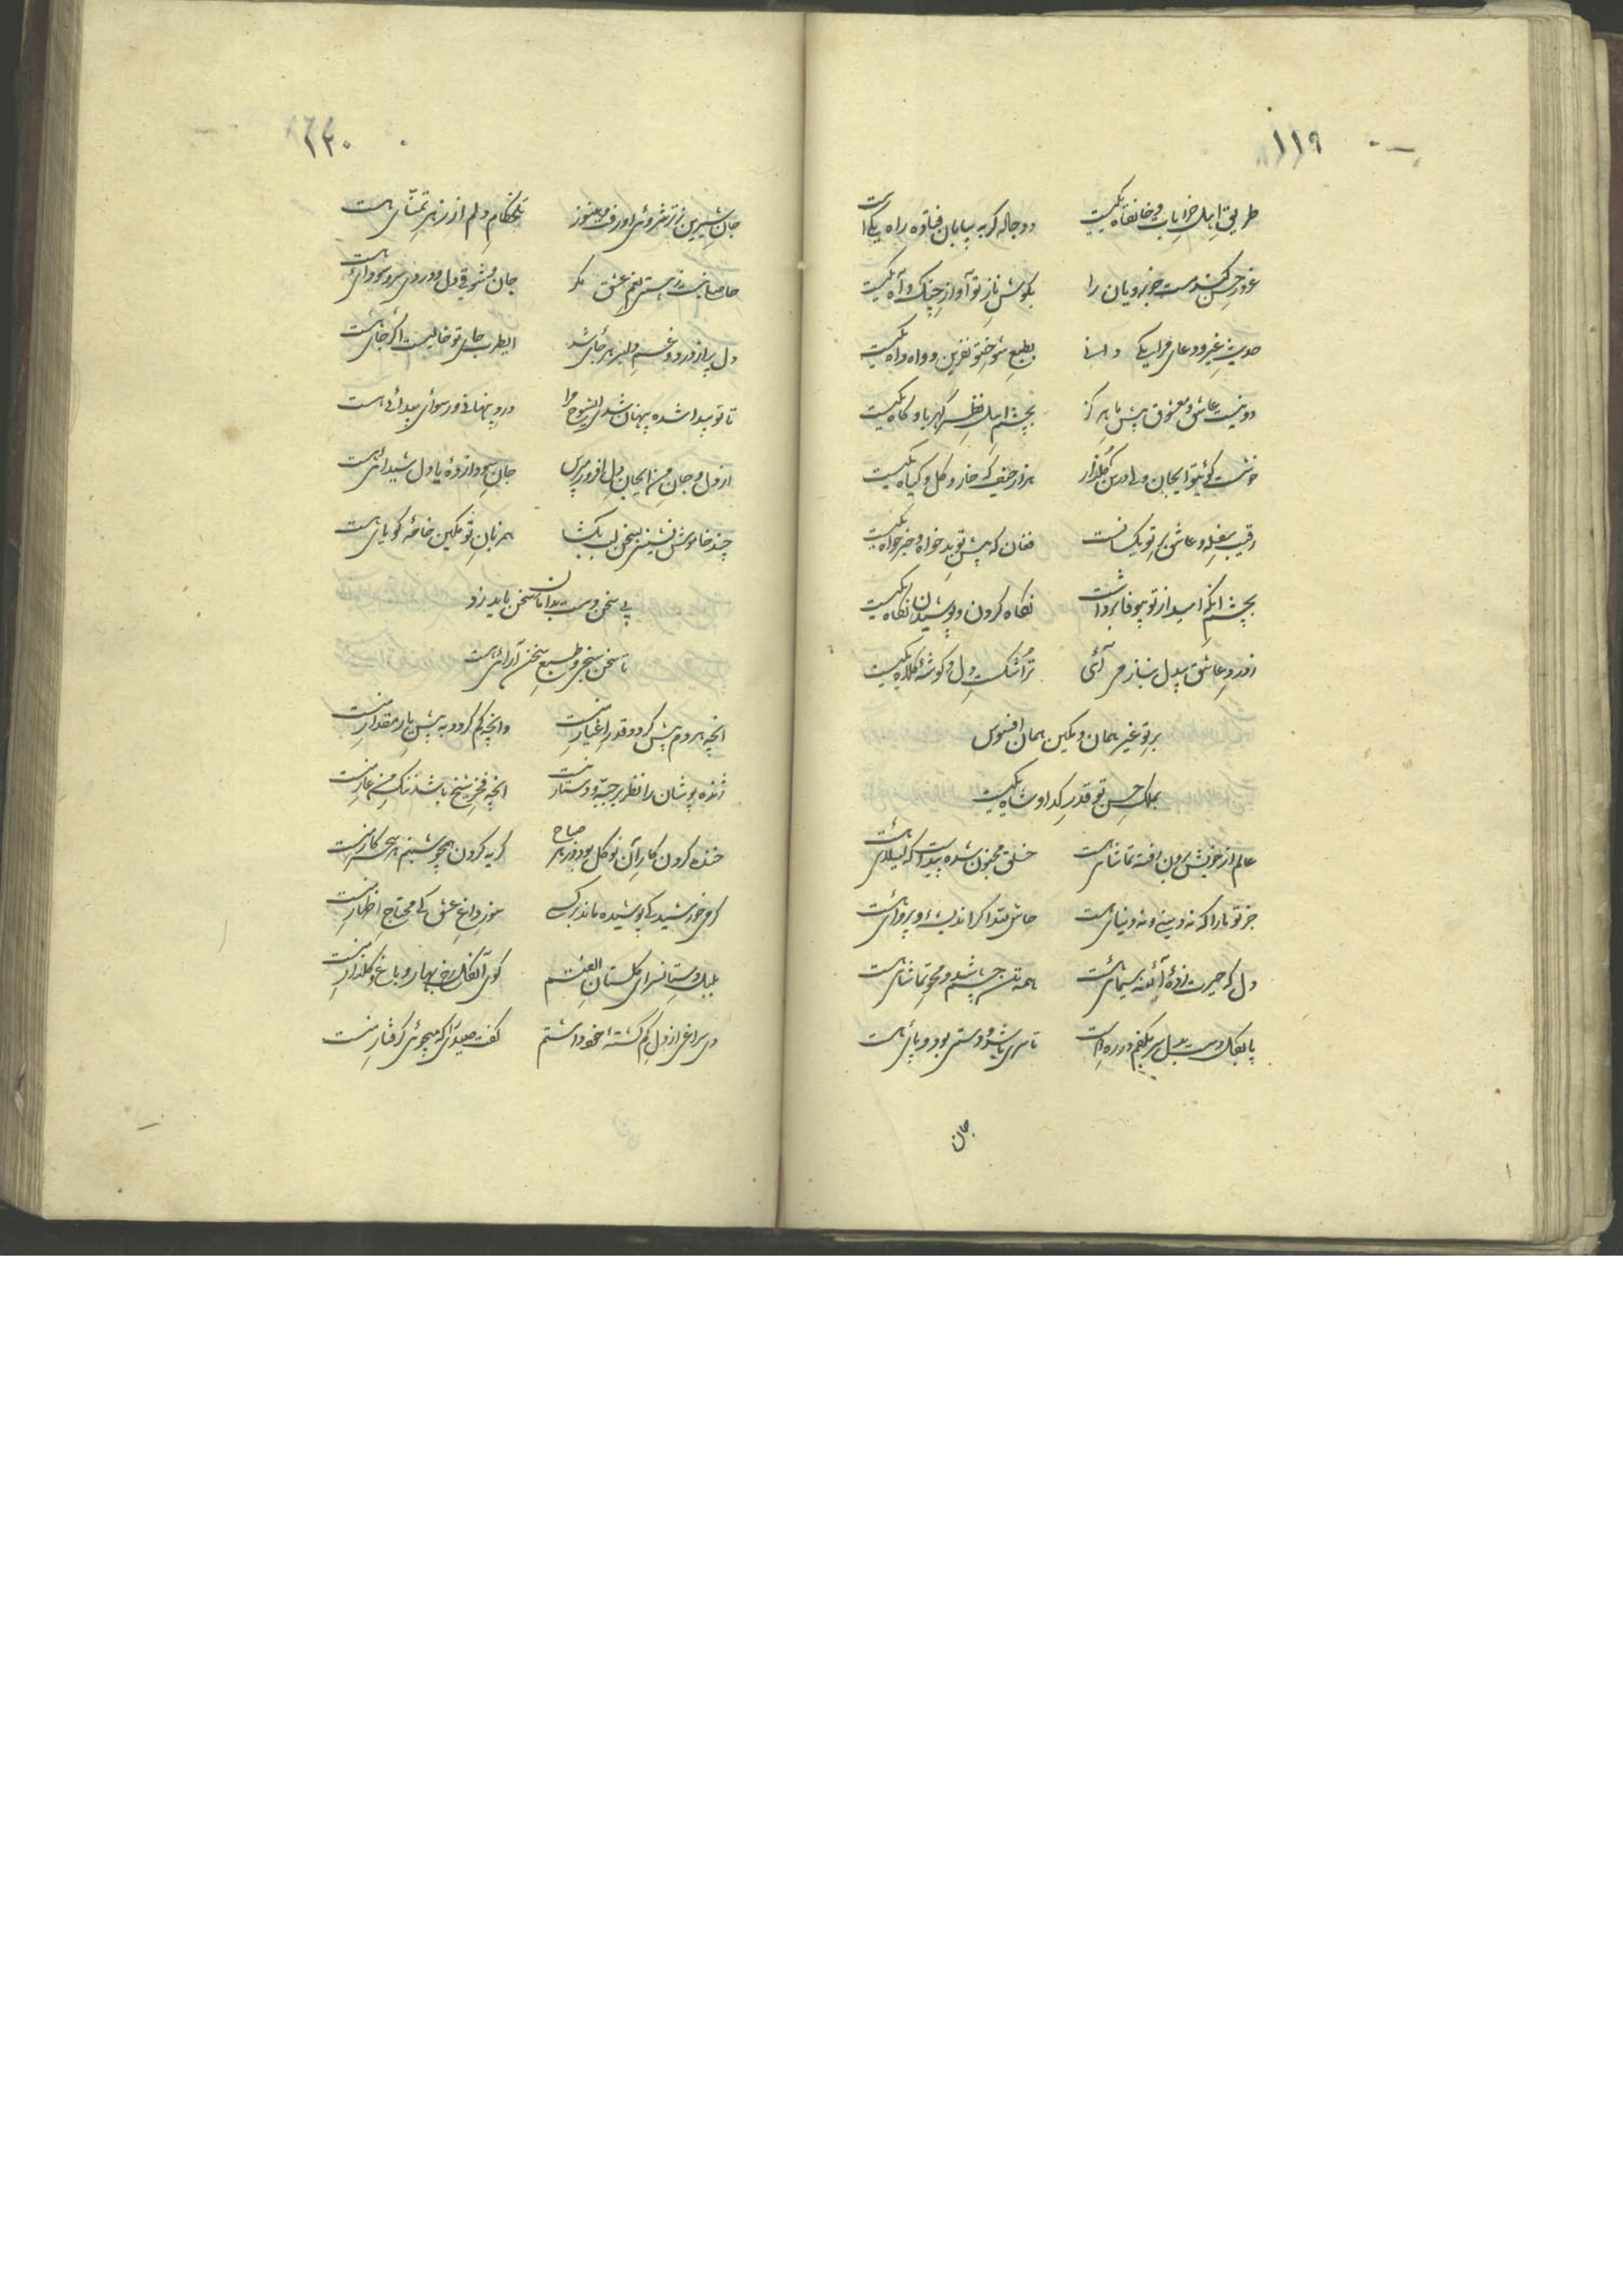 ۱۱۹
طریق اهل خرابات و خانقاه یکیست دو جاله گر به بیابان فتاده راه یکیست
غرور حسن کند مست خوبرویان را بگوش ناز تو آواز چنگ و آه یکیست
حدیث غیر و دعای مرا یکی دانی بطبع شوخ تو نفرین و واه واه یکیست
دو نیست عاشق و معشوق پیش ما هرگز بچشم اهل نظر کهربا و کاه یکیست
هزار حیف که خار و گل و گیاه یکیست
رقیب سفله و عاشق بر تو یکسانست فغان که پیش تو بدخواه و خیرخواه یکیست
بچشم آنکه امید از تو بیوفا برداشت نگاه کردن و پوشیدن نگاه یکیست
ز درد عاشق بیدل بناز می آئی ترا شکست دل و گوشهٔ کلاه یکیست
بر تو غیر همان و مکین همان افسوس
بملک حسن تو قدر گدا و شاه یکیست
عالم از خویش برون رفته تماشائی هست خلق مجنون شده پیداست که لیلائی هست
جز تو ما را که نه دینی و نه دنیائی هست حاش لله اگر اندیشه و پروائی هست
دل که حیرت زدهٔ آئنه سیمائی هست همه تن چشم شد و محو تماشائی هست
تا سری باشد و دستی بود و پائی هست
جان
۱۲۰
جان شیرین ز ترشروئی او رفت و هنوز تلخکام دلم از زهر تمنائی هست
جان و شوقی دل و دردی سر و سودائی هست
دل پر از درد و غم دلبر هر جائی شد ایطرب جای تو خالیست اگر جائی هست
تا تو پیدا شده پنهان شدی ایشوخ مرا درد پنهانی و رسوائی پیدائی هست
از دل و جان من ایجان دل افروز مپرس جان سودا زدهٔ یا دل شیدائی هست
چند خاموش نشینی بسخن لب بگشا همزبان تو مکین خامهٔ گویائی هست
پی سخن دست بدامان سخن باید زد
تا سخن سنجی و طبع سخن آرائی هست
آنچه هر دم بیش گردد قدر اغیار منست وانچه کم گردد به پیش یار مقدار منست
ژنده پوشان را نظر بر جبه و دستار نیست آنچه فخر شیخ باشد ننگ من عار منست
خنده کردن کار آن نوگل بود در هر صباح گریه کردن همچو شبنم هر سحر کار منست
گرمی خورشید کی پوشیده ماند بر کسی سوز داغ عشق کی محتاج اظهار منست
بلبل دستانسرای گلستان الفتم کوی آن گل رخ بهار و باغ و گلزار منست
دی سراغی از دل گم گشتهٔ خود داشتم گفت صیدی را که میجوئی گرفتار منست